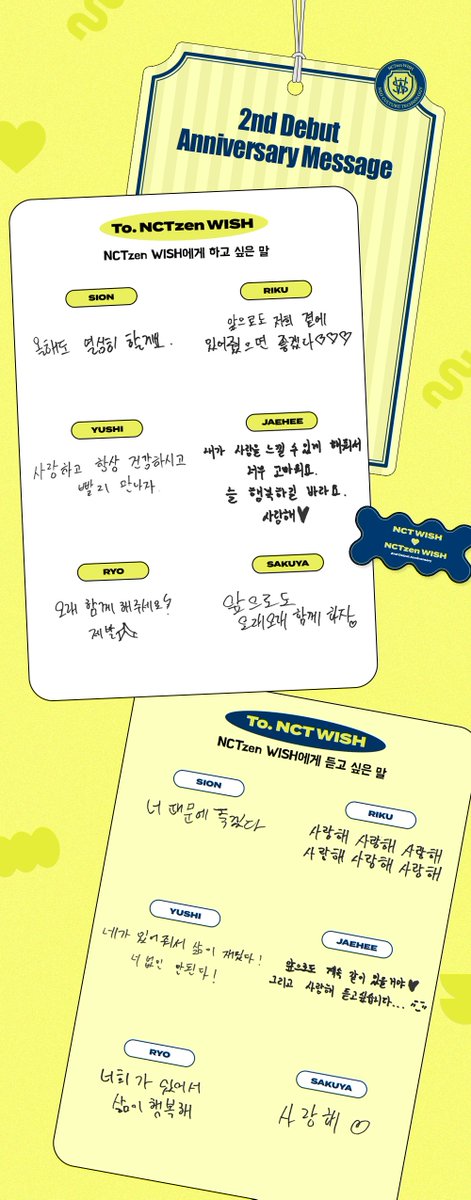 2nd Debut
Anniversary Message
To. NCTzen WISH
NCTzen WISH에게 하고 싶은 말
SION
올해도 열심히 할게요.
RIKU
앞으로도 저희 곁에
있어줬으면 좋겠다♡♡♡
YUSHI
사랑하고 항상 건강하시고
빨리 만나자
JAEHEE
내가 사랑을 느낄 수 있게 해줘서
너무 고마워요.
늘 행복하길 바라요.
사랑해♥
RYO
오래 함께 해주세요!
제발
SAKUYA
앞으로도
오래오래 함께 하자♡
NCT WISH
♥
NCTzen WISH
2nd Debut Anniversary
To. NCT WISH
NCTzen WISH에게 듣고 싶은 말
SION
너 때문에 죽겠다
RIKU
사랑해 사랑해 사랑해
사랑해 사랑해 사랑해
YUSHI
네가 있어줘서 삶이 재밌다!
너 없인 안된다!
JAEHEE
앞으로도 계속 같이 있을거야♥
그리고 사랑해 듣고싶습니다...
RYO
너희가 있어서
삶이 행복해
SAKUYA
사랑해♡